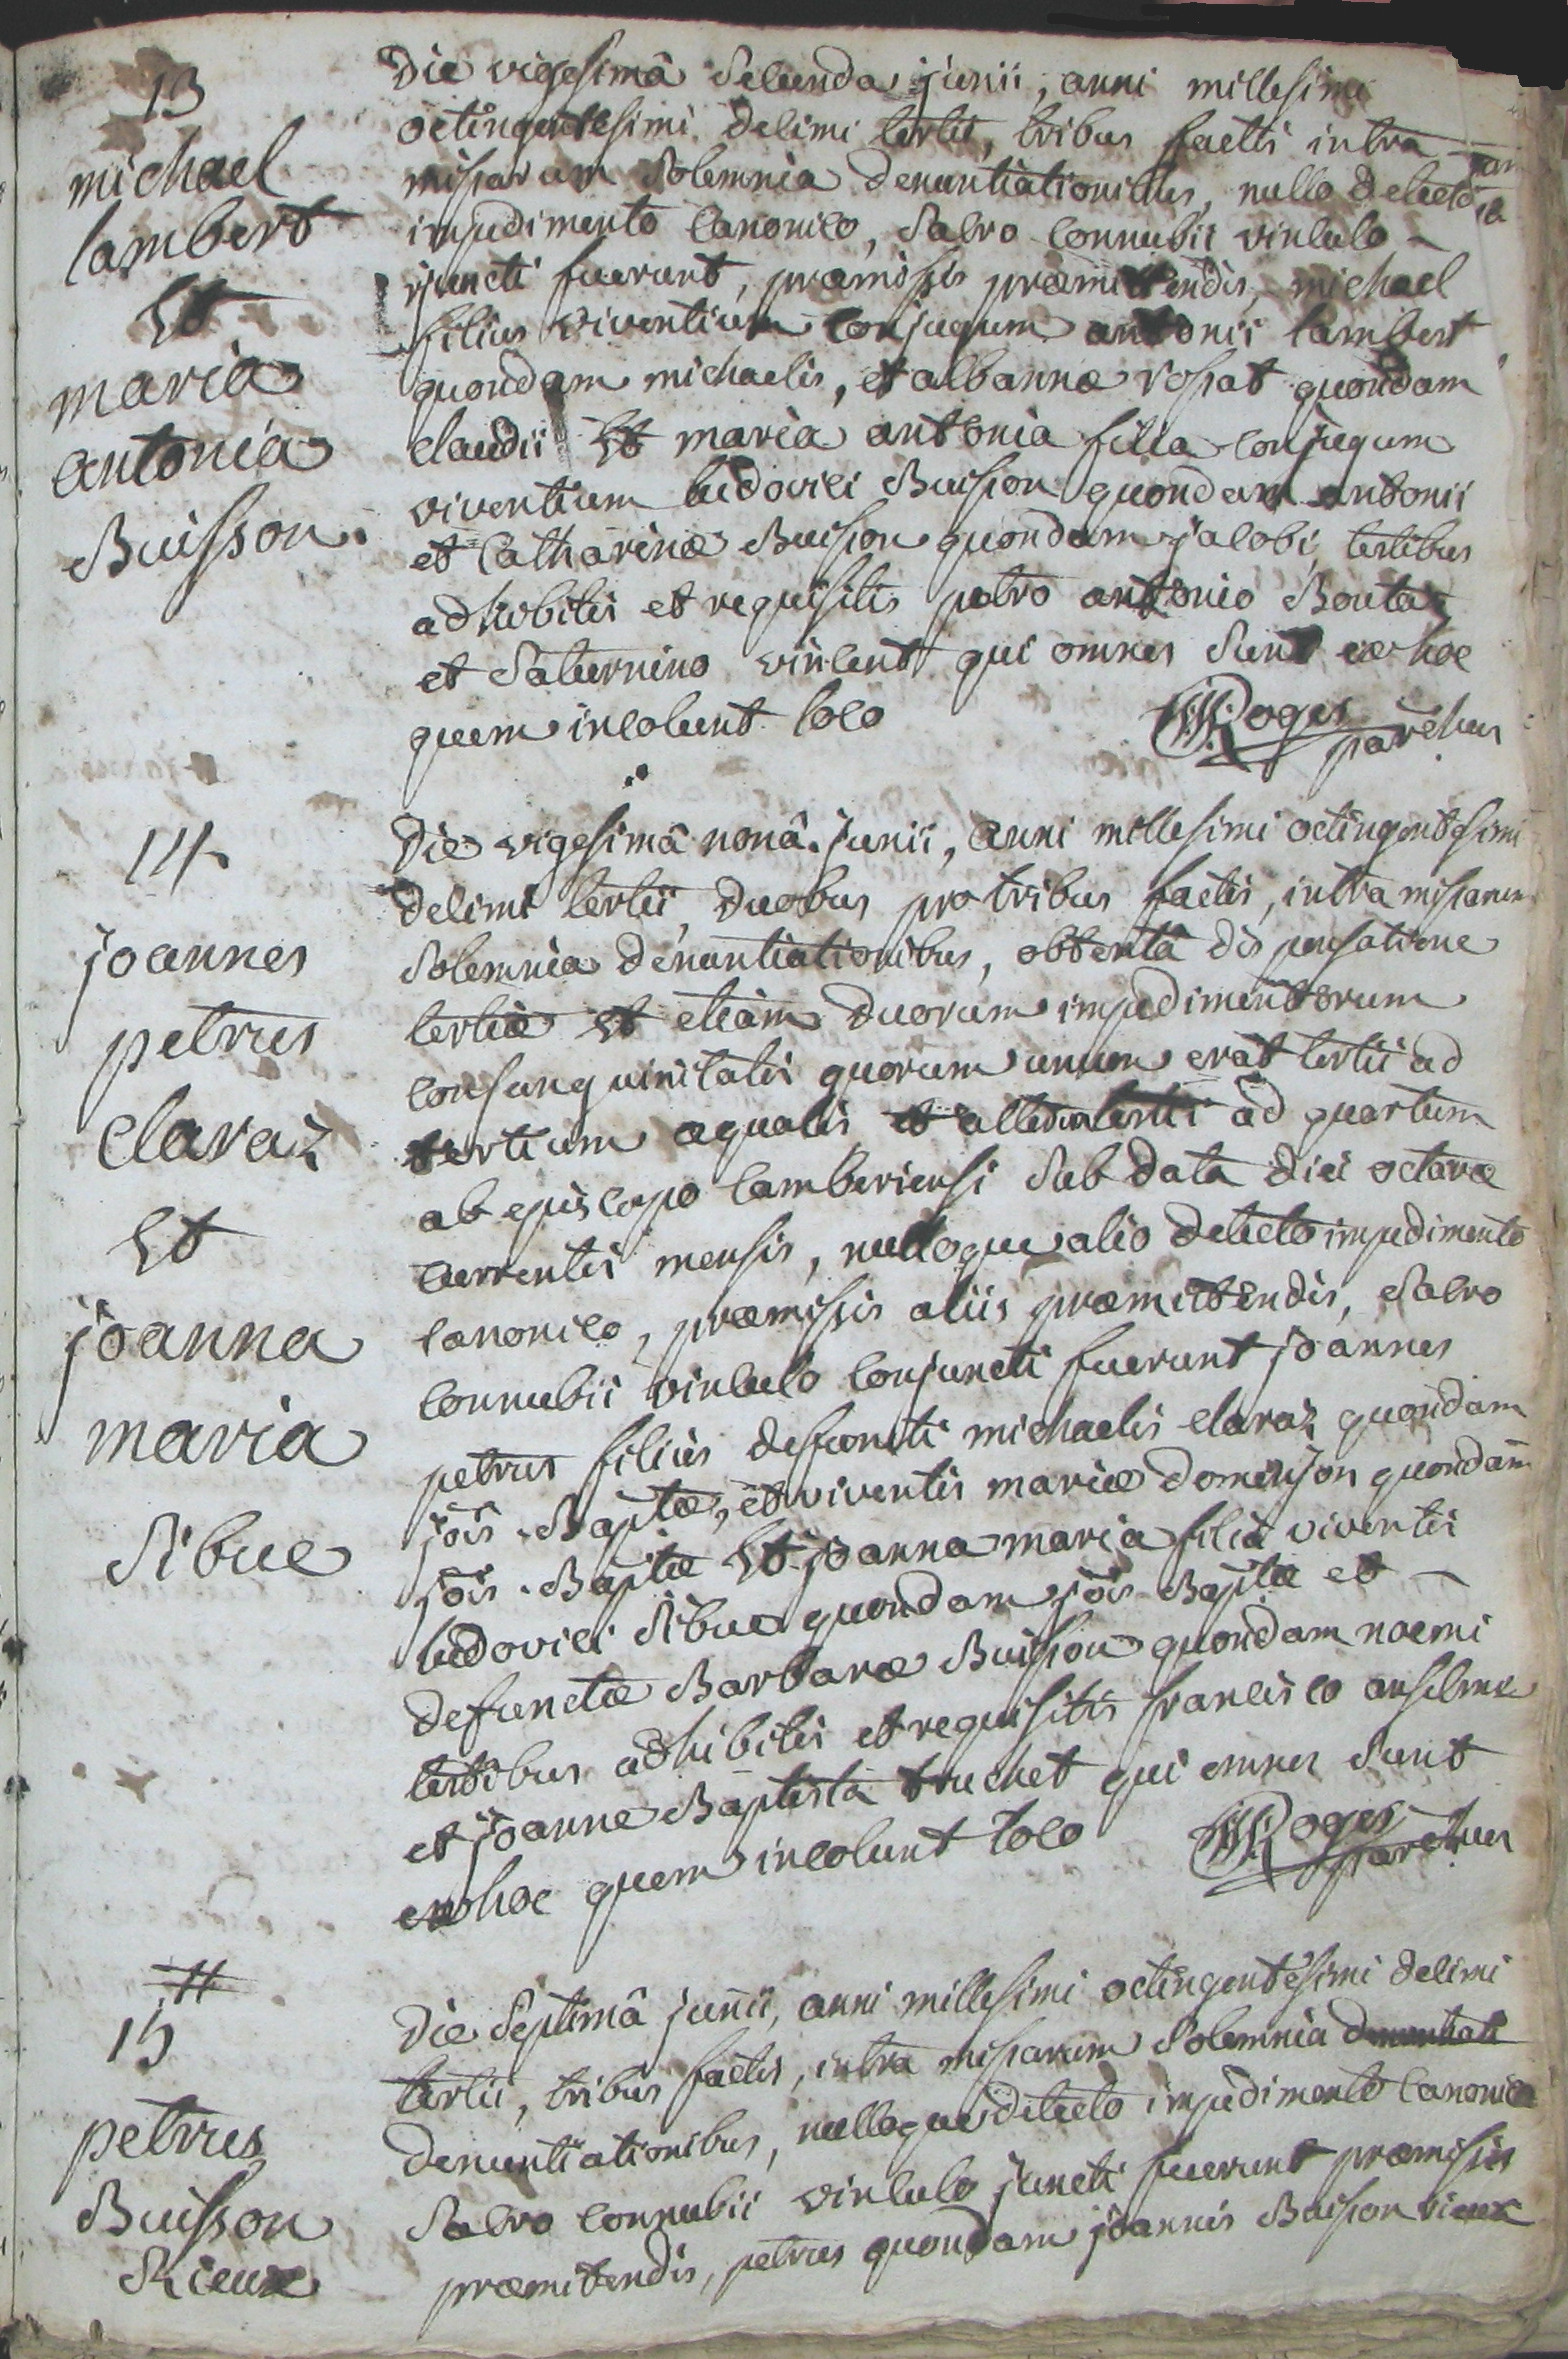 13
michael
lambert
Et
maria
antonia
Buisson.
Die vigesimâ secunda junii, anni millesimi
octingentesimi decimi tertii, tribus factis intra
missarum solemnia denuntiationibus, nullo detecto
impedimento canonico, sacro connubii vinculo
juncti fuerunt, præmissis præmittendis, michael
filius viventium conjugum antonii lambert
quondam michaelis, et albannæ rossat quondam
claudii Et maria antonia filia conjugum
viventium ludovici Buisson quondam antonii
et Catharinæ Buisson quondam jacobi, testibus
adhibitis et requisitis petro antonio Boutaz
et Saturnino vincent qui omnes sunt ex hoc
quem incolunt loco
Roges parchus
14
joannes
petrus
Claraz
Et
joanna
maria
Sibue
Die vigesimâ nonâ junii, anni millesimi octingentesimi
decimi tertii, duobus pro tribus factis, intra missarum
solemnia denuntiationibus, obtentâ dispensatione
tertiæ et etiam duorum impedimentorum
consanguinitatis quorum unum erat tertii ad
tertium æqualis et tertii ad quartum
ab episcopo Camberiensi sub data diei octavæ
currentis mensis, nulloque alio detecto impedimento
canonico, præmissis aliis præmittendis, sacro
connubii vinculo conjuncti fuerunt joannes
petrus filius defuncti michaelis claraz quondam
jois Baptæ, et viventis mariæ domenjon quondam
jois Baptæ Et joanna maria filia viventis
ludovici Sibue quondam jois Baptæ et
defunctæ Barbaræ Buisson quondam noemi
testibus adhibitis et requisitis francisco anselme
et joanne Baptista truchet qui omnes sunt
ex hoc quem incolunt loco
Roges parchus
15
petrus
Buisson
Rieux
Die septimâ junii, anni millesimi octingentesimi decimi
tertii, tribus factis, intra missarum solemnia denuntiati
denuntiationibus, nulloque detecto impedimento canonico
sacro connubii vinculo juncti fuerunt præmissis
præmitendis, petrus quondam joannis Buisson rieux